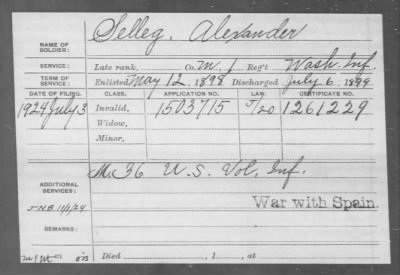 Selleg, Alexander
NAME OF SOLDIER:
SERVICE: Late rank, Co. M, 1 Reg't Wash. Inf.
TERM OF SERVICE: Enlisted May 12, 1898 Discharged July 6, 1899
DATE OF FILING. CLASS. APPLICATION NO. LAW. CERTIFICATE NO.
1924 July 3 Invalid, 1503715 1261229
Widow,
Minor,
M. 36 U.S. Vol. Inf.
ADDITIONAL SERVICES:
War with Spain.
REMARKS:
Died , 1 , at